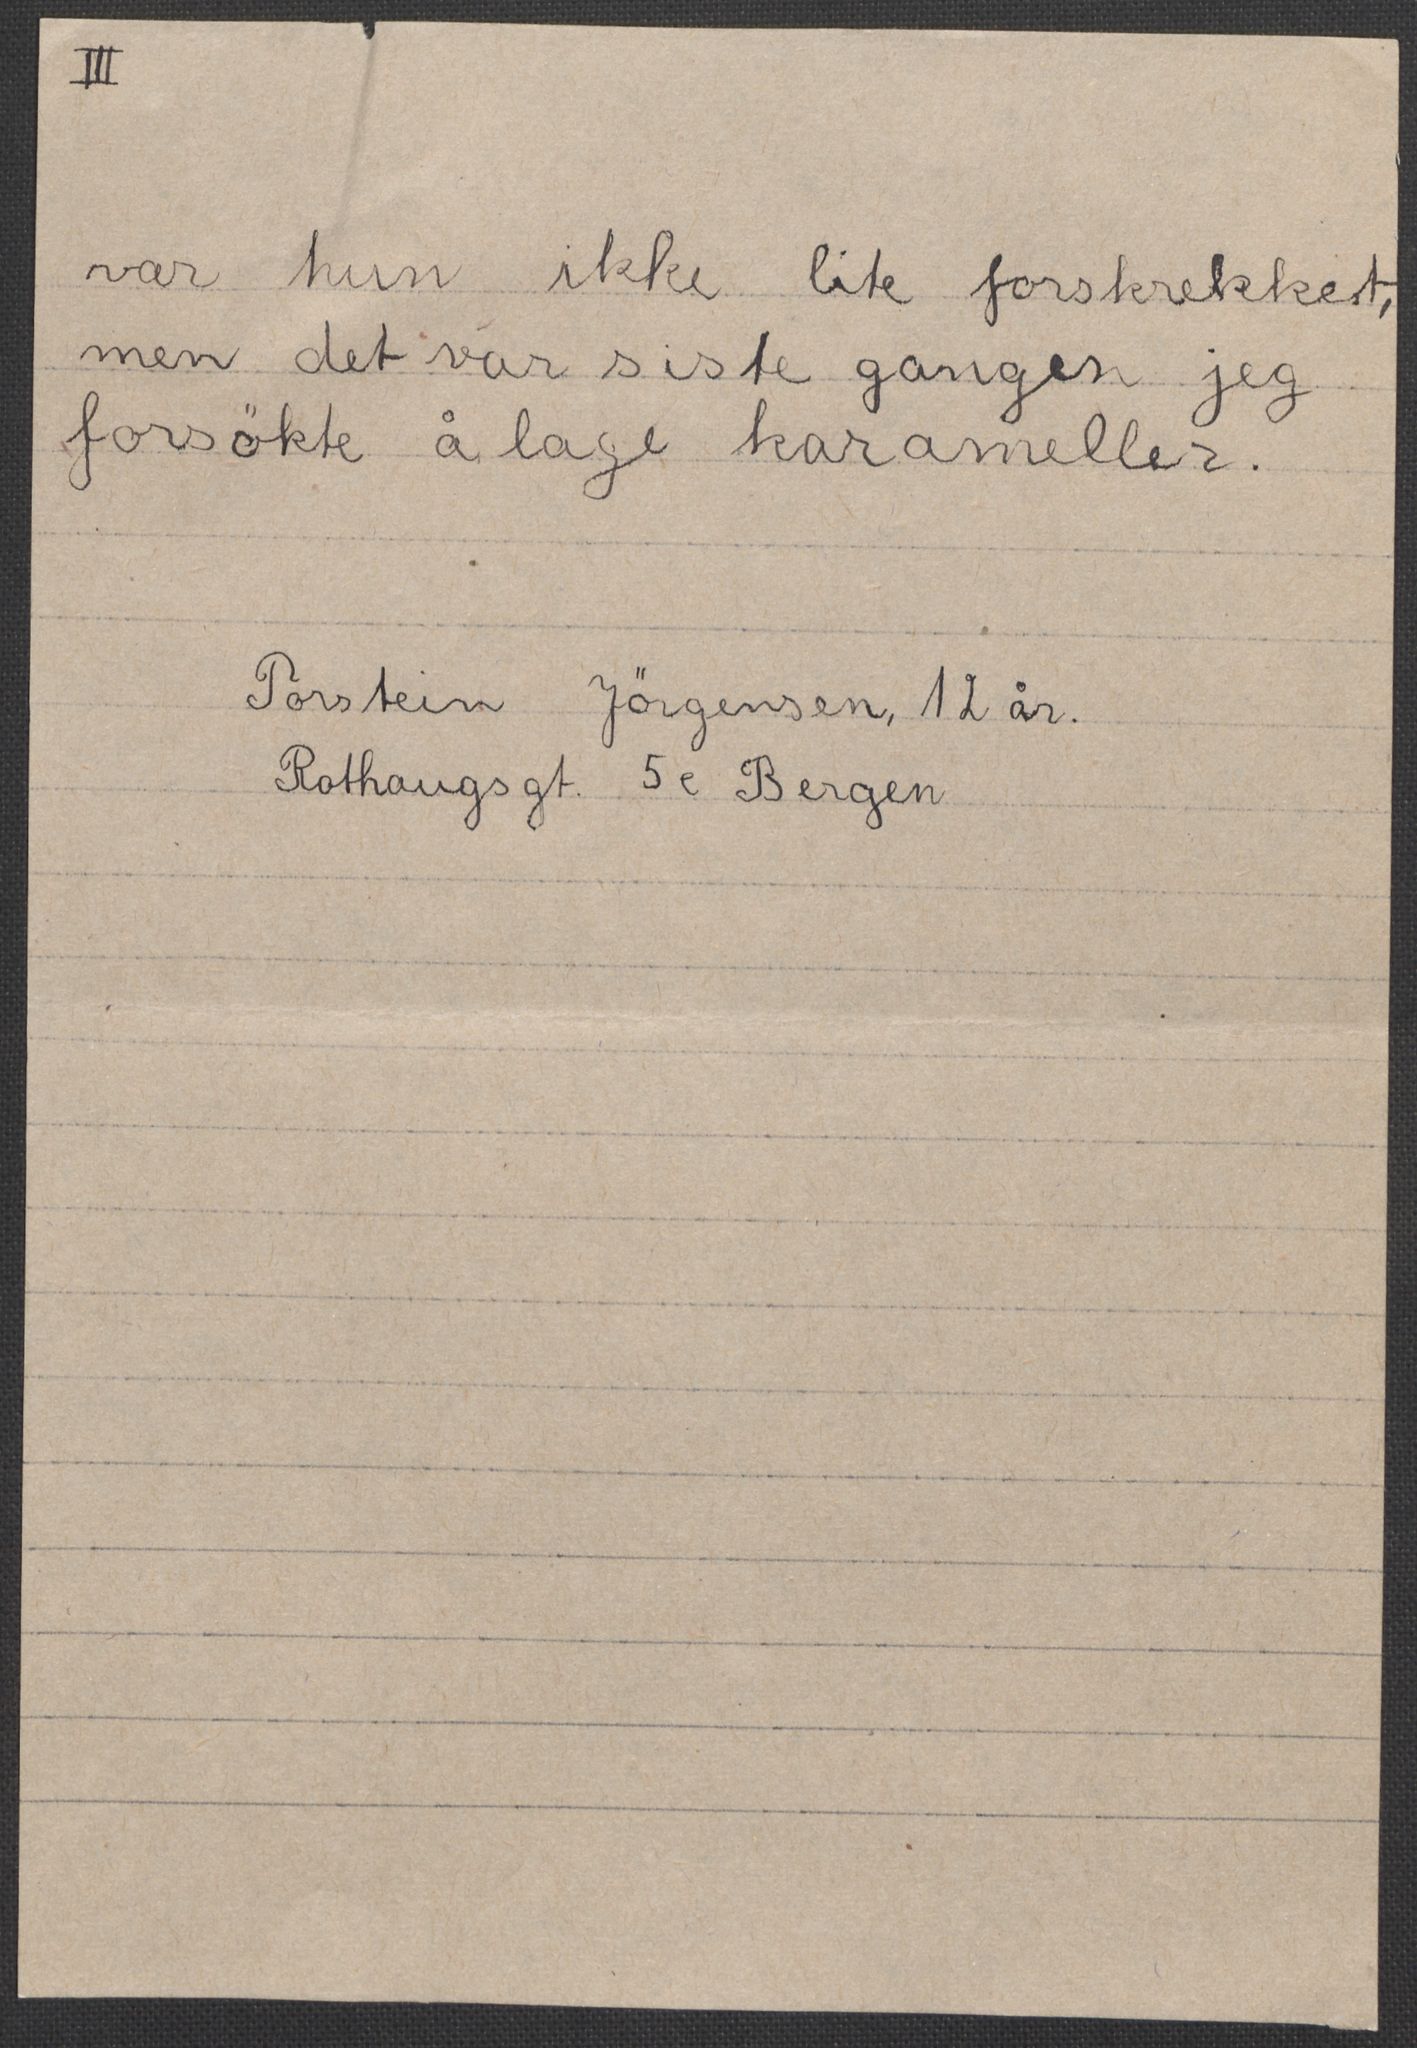 III
var hun ikke lite forskrekket,
men det var siste gangen jeg
forsökte å lage karameller.
Torstein Jörgensen, 12 år.
Rothaugsgt. 5c Bergen